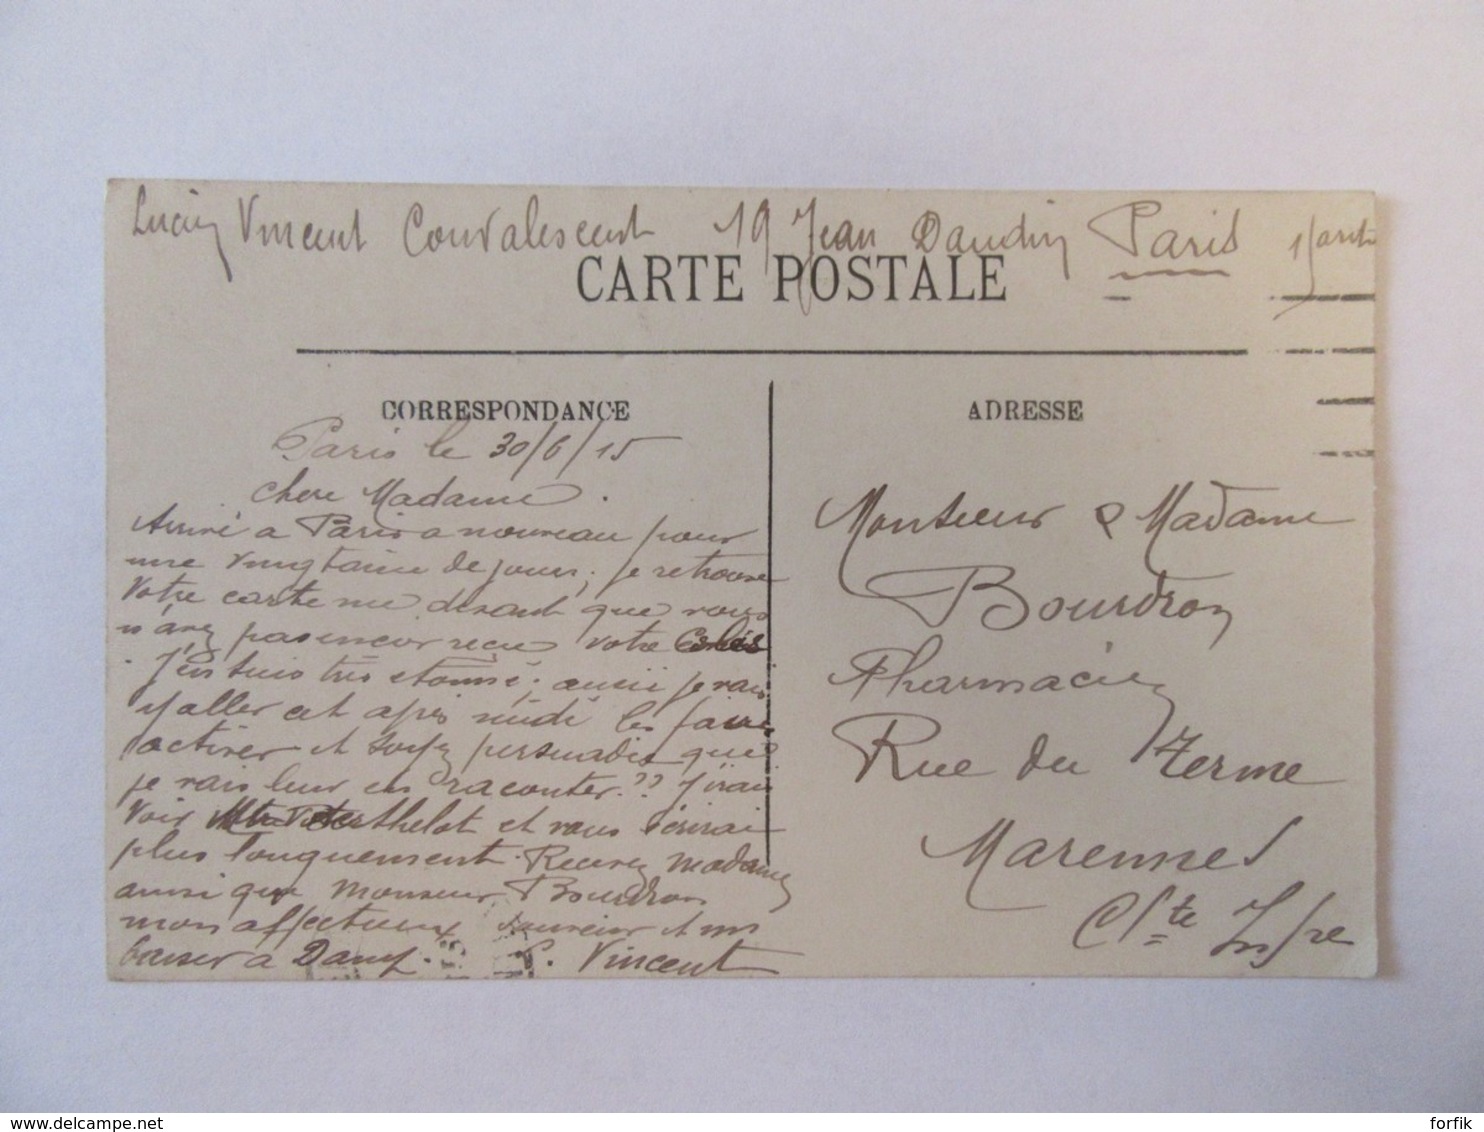 Lucien Vincent Convalescent 19 Jean Daudin Paris
CARTE POSTALE
CORRESPONDANCE
Paris le 30/6/15
Chere Madame.
Arrivé a Paris a nouveau pour
une vingtaine de jours, je retrouve
votre carte me disant que vous
n'avez pas encore reçu votre Colis
. J'en suis très étonné; aussi je vais
y aller cet après midi les faire
activer et soyez persuadée que
je vais leur en raconter?? J'irai
voir Berthelot et vous écrirai
plus longuement. Recevez Madame
ainsi que Monsieur Bourdron
mon affectueux souvenir et un
baiser a Dany. L. Vincent
ADRESSE
Monsieur & Madame
Bourdron
Pharmacien
Rue du Terme
Marennes
Ch^te Infre
forfik